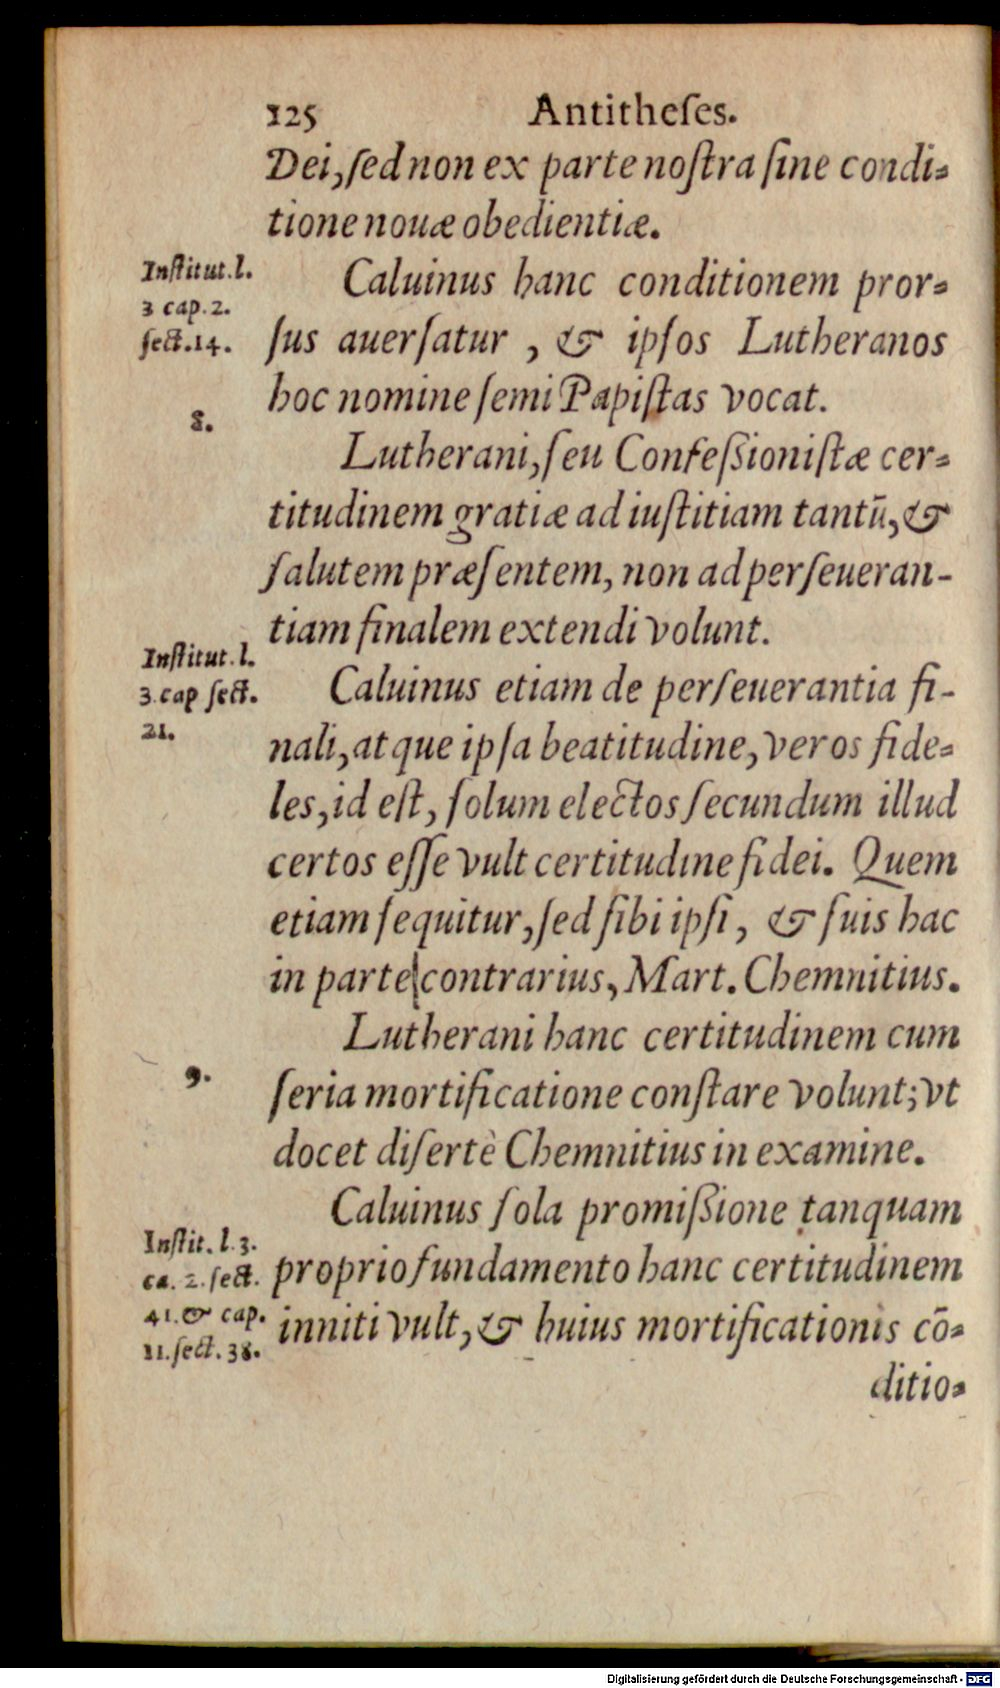 125 Antitheſes.
Dei, ſed non ex parte noſtra ſine condi-
tione nouæ obedientiæ.
Inſtitut. l.
3 cap. 2.
ſect. 14.
Caluinus hanc conditionem pror-
ſus auerſatur , & ipſos Lutheranos
hoc nomine ſemi Papiſtas vocat.
8.
Lutherani, ſeu Confeßioniſtæ cer-
titudinem gratiæ ad iuſtitiam tantū, &
ſalutem præſentem, non ad perſeueran-
tiam finalem extendi volunt.
Inſtitut. l.
3. cap ſect.
21.
Caluinus etiam de perſeuerantia fi-
nali, atque ipſa beatitudine, veros fide-
les, id eſt, ſolum electos ſecundum illud
certos eſſe vult certitudine fidei. Quem
etiam ſequitur, ſed ſibi ipſi, & ſuis hac
in parte contrarius, Mart. Chemnitius.
9.
Lutherani hanc certitudinem cum
ſeria mortificatione conſtare volunt; vt
docet diſertè Chemnitius in examine.
Inſtit. l. 3.
ca. 2. ſect.
41. & cap.
11. ſect. 38.
Caluinus ſola promißione tanquam
proprio fundamento hanc certitudinem
inniti vult, & huius mortificationis cō-
ditio-
Digitalisierung gefördert durch die Deutsche Forschungsgemeinschaft - DFG